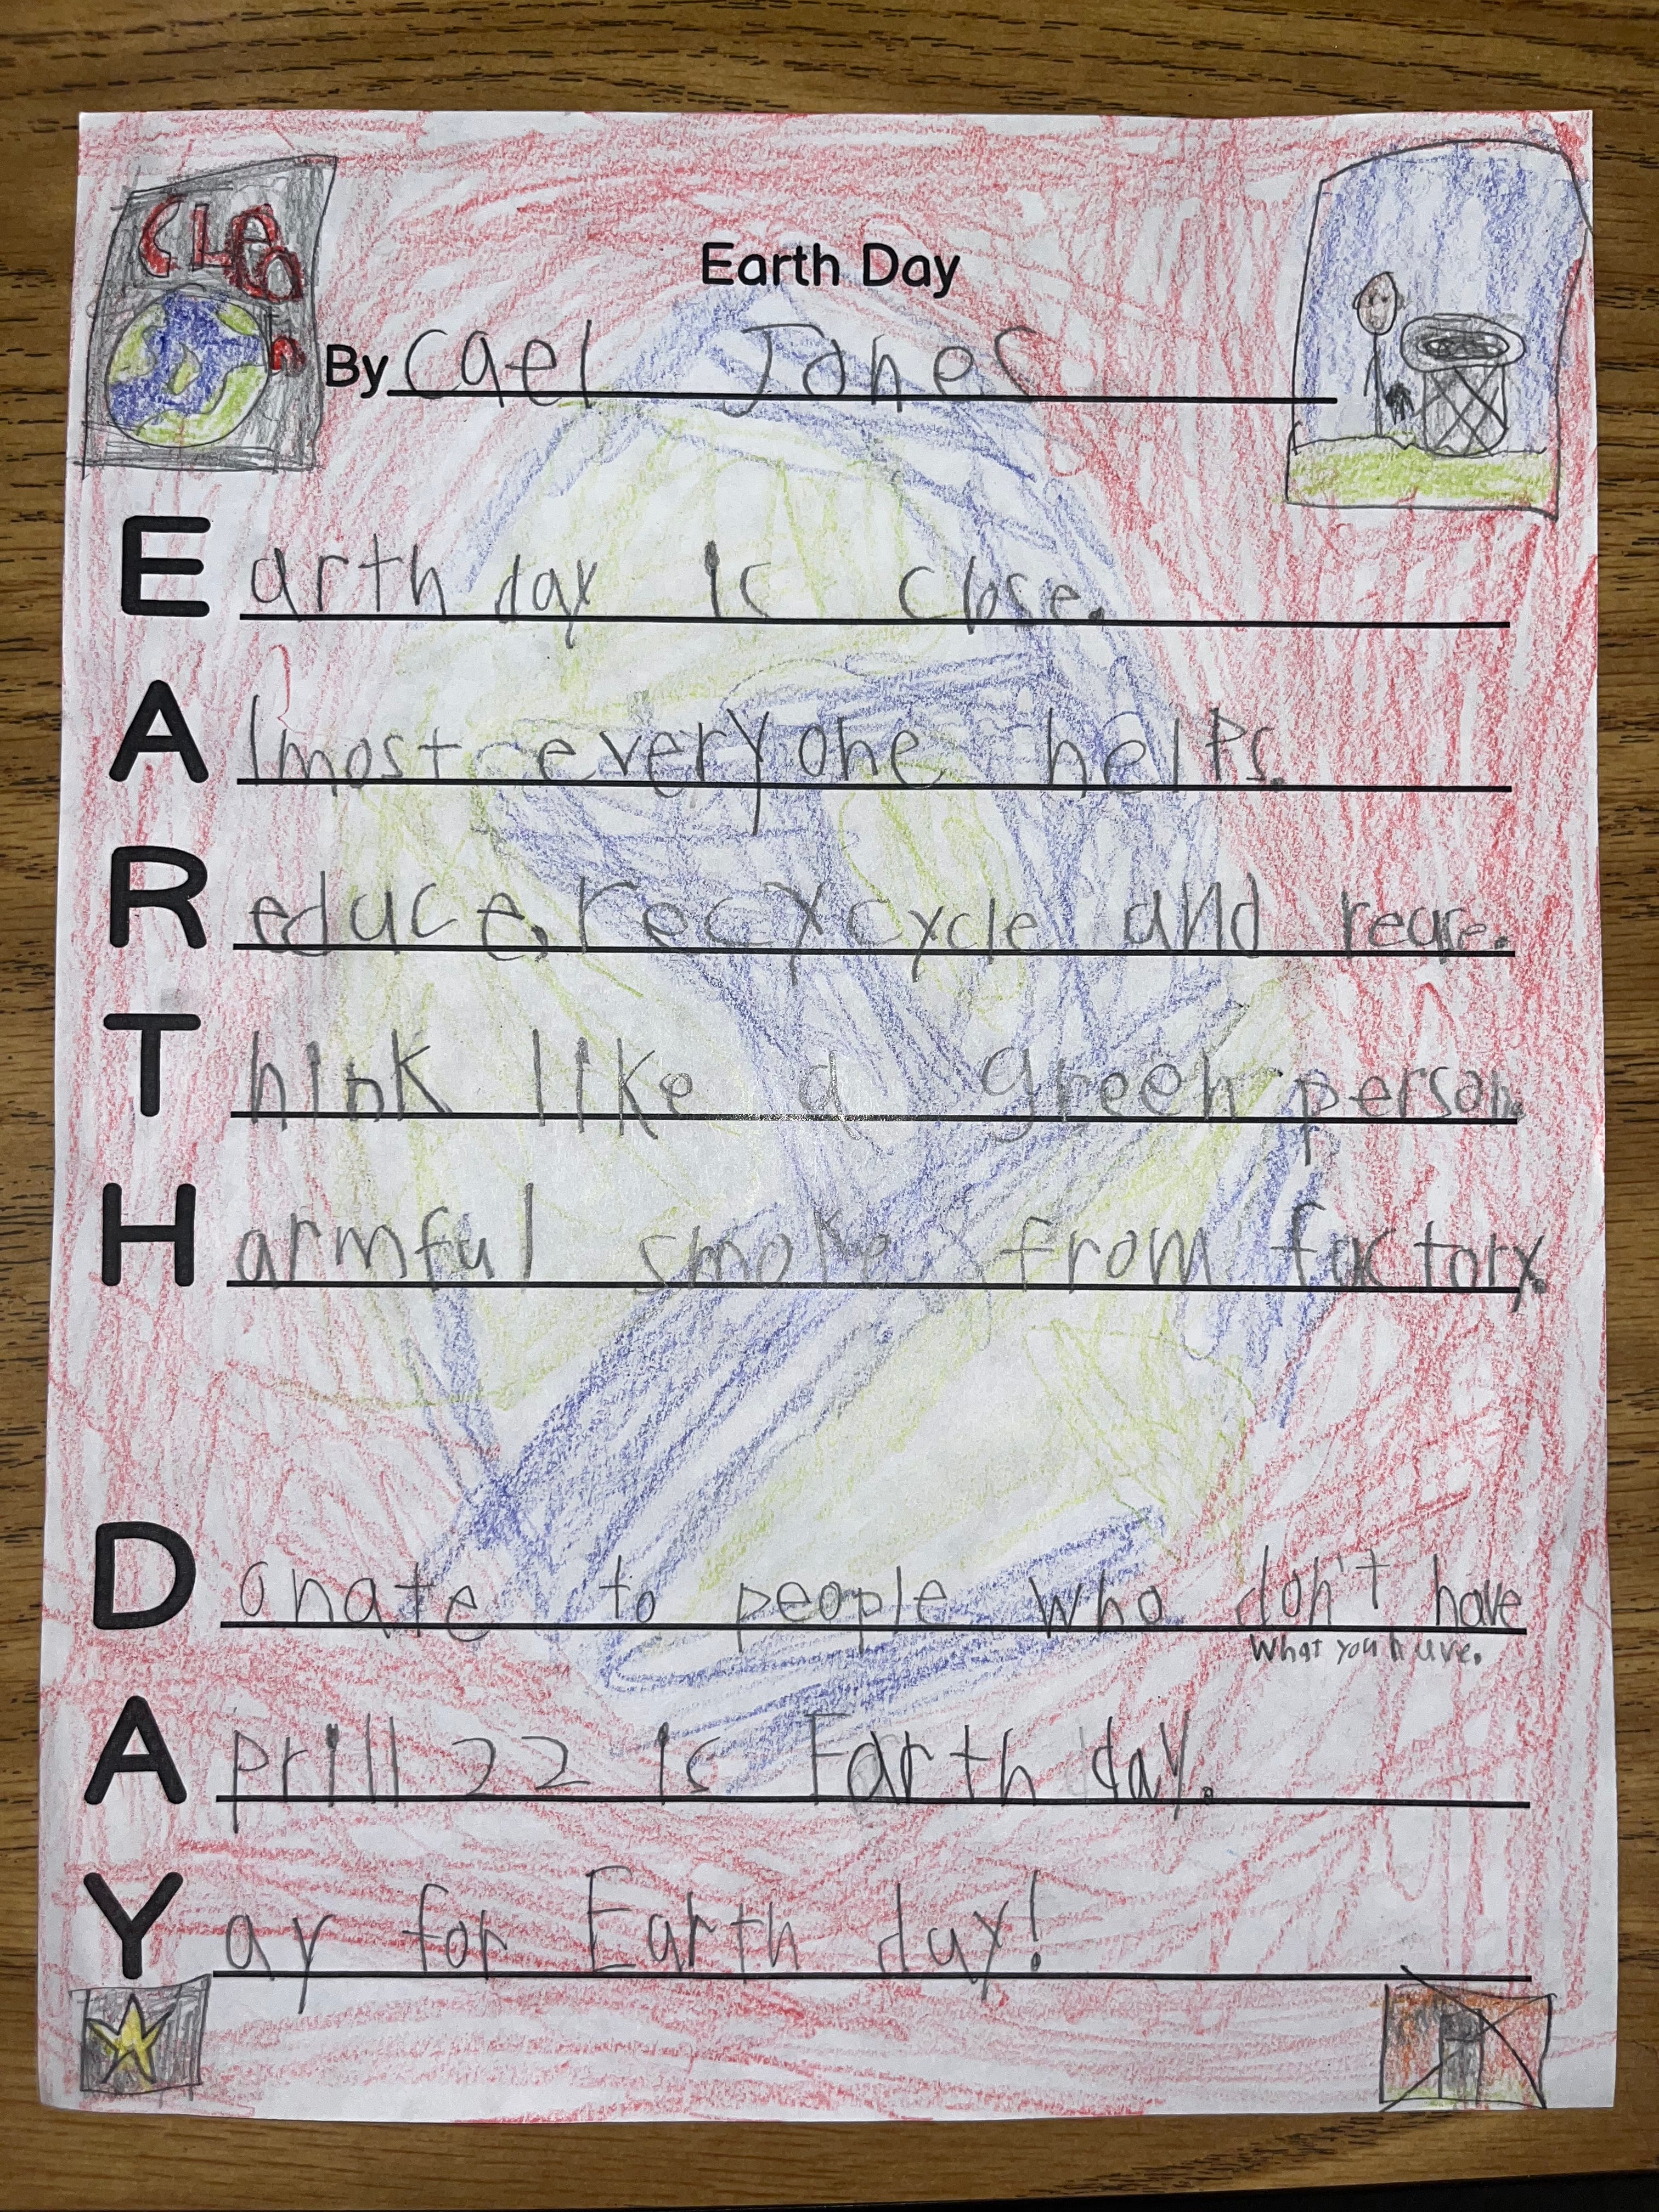 Earth Day
By Cael Jones
Earth day is close.
Almost everyone helps.
Reduce, recycycle and reuse.
Think like a green person.
Harmful smoke from factory.
Donate to people who don't have
what you have.
Aprill 22 is Earth day.
Yay for Earth day!